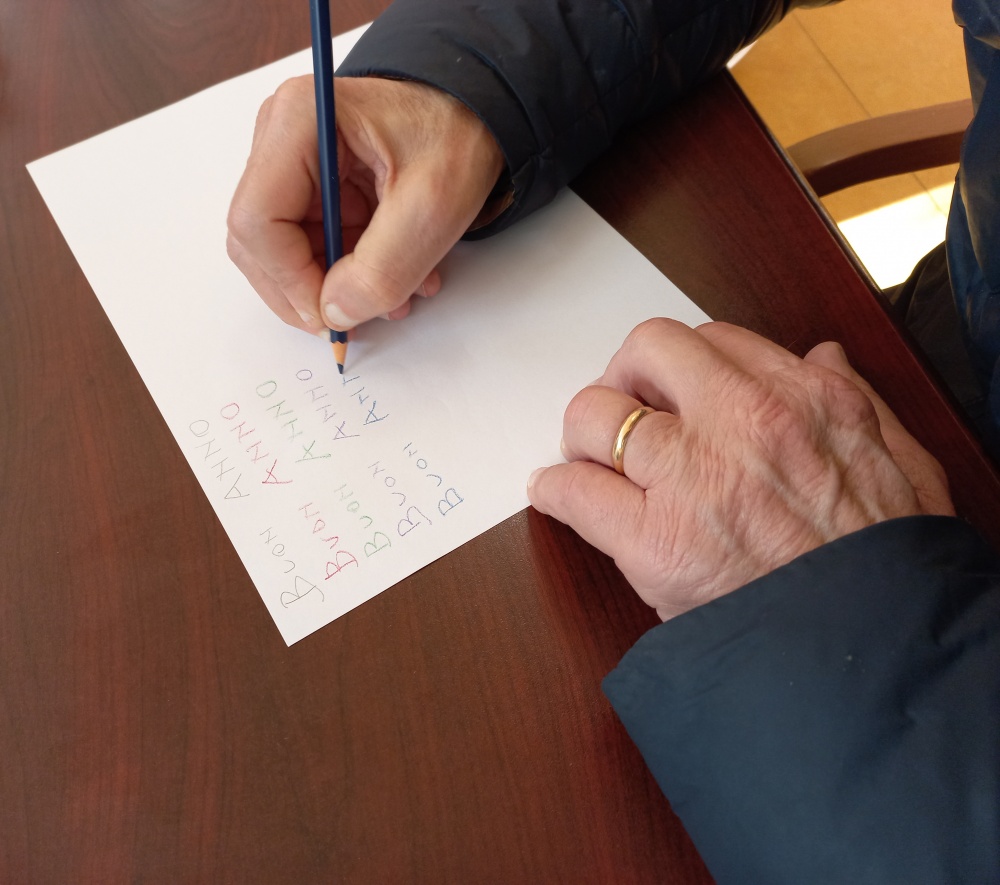 BUON ANNO
BUON ANNO
BUON ANNO
BUON ANNO
BUON ANN